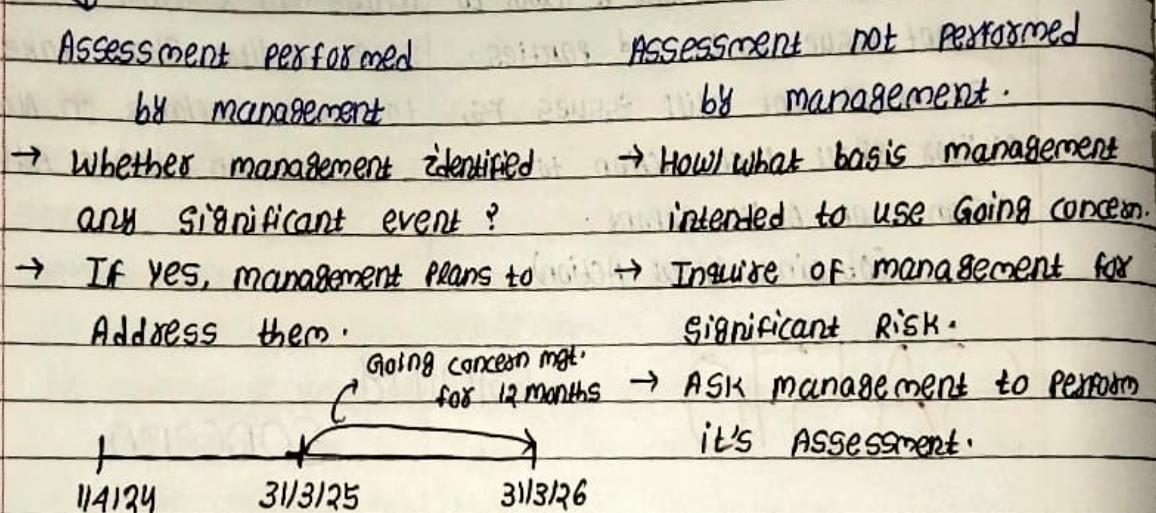 Assessment performed
by management
→ Whether management identified
any significant event ?
→ If yes, management plans to
Address them.
Going concern mgt.
for 12 months
1/4/24 31/3/25 31/3/26
Assessment not performed
by management.
→ How/what basis management
intended to use Going concern.
→ Inquire of management for
significant Risk.
→ ASK management to perform
it's Assessment.